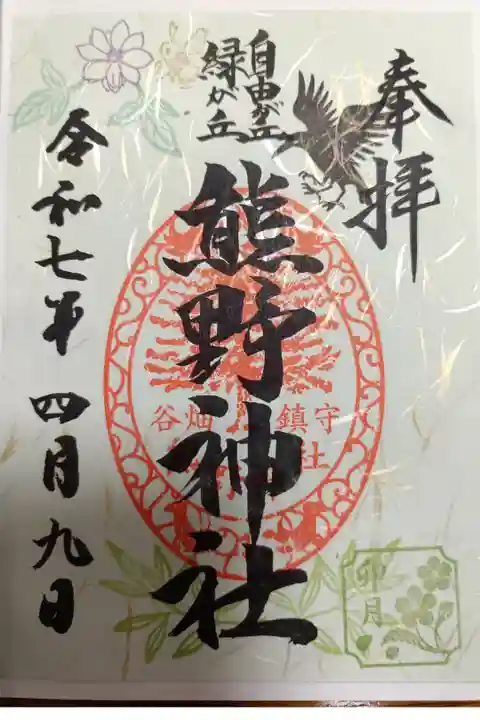 奉拝
自由が丘
緑が丘
熊野神社
守
鎮
社
谷畑
令和七年 四月九日
卯月